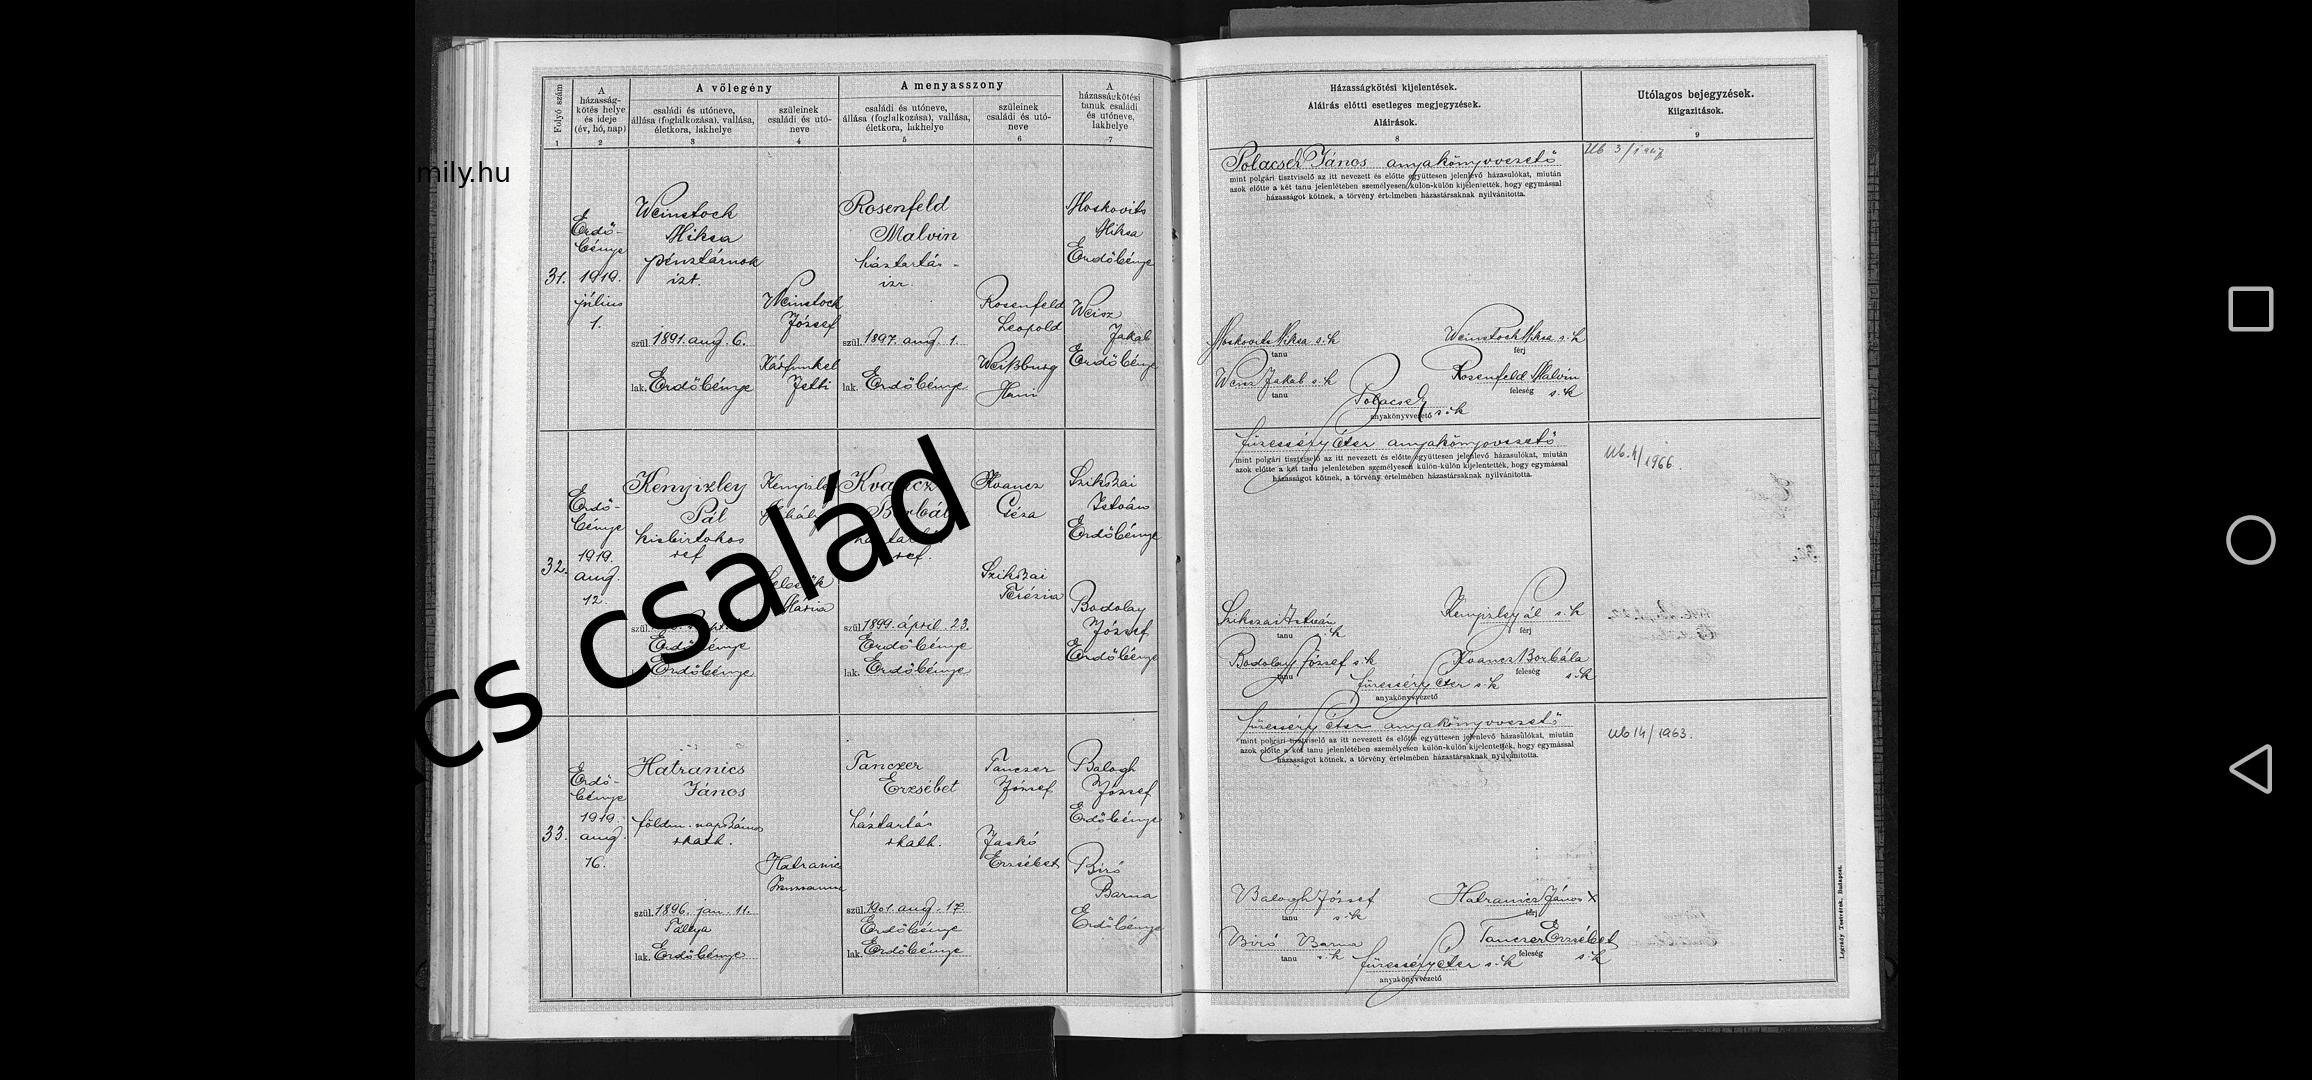 mily.hu
cs család
Folyó szám
A házasság-
kötés helye
és ideje
(év, hó, nap)
A vőlegény
családi és utóneve,
állása (foglalkozása), vallása,
életkora, lakhelye
szüleinek
családi és utó-
neve
A menyasszony
családi és utóneve,
állása (foglalkozása), vallása,
életkora, lakhelye
szüleinek
családi és utó-
neve
A
házasságkötési
tanuk családi
és utóneve,
lakhelye
Házasságkötési kijelentések.
Aláirás előtti esetleges megjegyzések.
Aláirások.
Utólagos bejegyzések.
Kiigazitások.
1 2 3 4 5 6 7 8 9
31.
Erdő-
bénye
1919.
július
1.
Weinstock
Miksa
pénztárnok
izr.
szül. 1891. aug. 6.
lak. Erdőbénye
Weinstock
József
Kárfunkel
Rosenfeld
Malvin
háztartás-
izr.
szül. 1897. aug. 1.
lak. Erdőbénye
Rosenfeld
Leopold
Weiszburg
Hani
Moskovits
Miksa
Erdőbénye
Weisz
Jakab
Erdőbénye
Polacsek János anyakönyvvezető
mint polgári tisztviselő az itt nevezett és előtte együttesen jelenlevő házasulókat, miután
azok előtte a két tanu jelenlétében személyesen külön-külön kijelentették, hogy egymással
házasságot kötnek, a törvény értelmében házastársaknak nyilvánitotta.
Moskovits Miksa s. k
tanu
Weinstock Miksa s. k
férj
Weisz Jakab s. k
tanu
Rosenfeld Malvin
feleség s. k
Polacsek s. k
anyakönyvvezető
32.
Erdő-
bénye
1919.
aug.
12.
Kenyizley
Pál
kisbirtokos
ref
szül.
Erdőbénye
Erdőbénye
Mária
Borbála
ref.
szül. 1899. ápril. 23.
Erdőbénye
lak. Erdőbénye
Kvancz
Géza
Szikszai
Terézia
Szikszai
István
Erdőbénye
Bodolay
József
Erdőbénye
Füzesséry Péter anyakönyvvezető
mint polgári tisztviselő az itt nevezett és előtte együttesen jelenlevő házasulókat, miután
azok előtte a két tanu jelenlétében személyesen külön-külön kijelentették, hogy egymással
házasságot kötnek, a törvény értelmében házastársaknak nyilvánitotta.
Ub. 4/1966.
Szikszai István
tanu s. k
Kenyizley Pál s. k
férj
Bodolay József s. k
tanu
Kvancz Borbála
feleség s. k
Füzesséry Péter s. k
anyakönyvvezető
33.
Erdő-
bénye
1919.
aug.
16.
Hatranics
János
földm. napszámos
r kath.
szül. 1896. jan. 11.
Tállya
lak. Erdőbénye
Hatranics
Zsuzsanna
Tanczer
Erzsébet
háztartás
r kath.
szül. 1901. aug. 17.
Erdőbénye
lak. Erdőbénye
Tanczer
József
Jaskó
Erzsébet
Balogh
József
Erdőbénye
Biró
Barna
Erdőbénye
Füzesséry Péter anyakönyvvezető
mint polgári tisztviselő az itt nevezett és előtte együttesen jelenlevő házasulókat, miután
azok előtte a két tanu jelenlétében személyesen külön-külön kijelentették, hogy egymással
házasságot kötnek, a törvény értelmében házastársaknak nyilvánitotta.
Ub 14/1963.
Balogh József
tanu s. k
Hatranics János X
férj
Biró Barna
tanu s. k
Tanczer Erzsébet
feleség s. k
Füzesséry Péter s. k
anyakönyvvezető
Légrády Testvérek, Budapest.